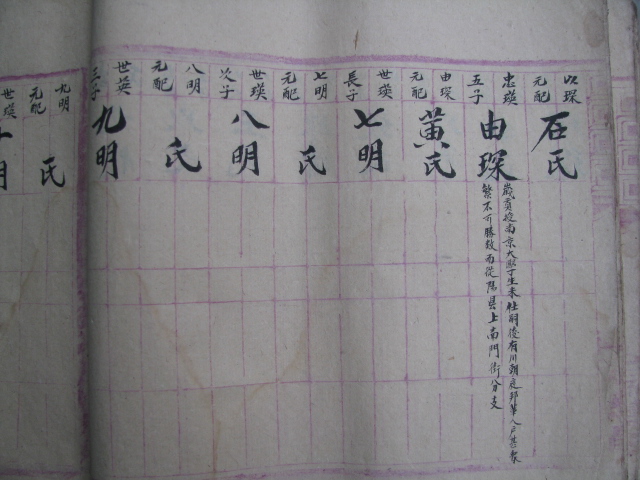 以琛
元配
石氏
忠瑛
五子
由琛
歲貢授南京大生未仕嗣後有川朝庭邦華八戶甚
繁不可勝数而從陽县上南門街分支
由琛
元配
黄氏
世瑛
長子
七明
七明
元配
氏
世瑛
次子
八明
八明
元配
氏
世英
三子
九明
九明
元配
氏
世瑛
明